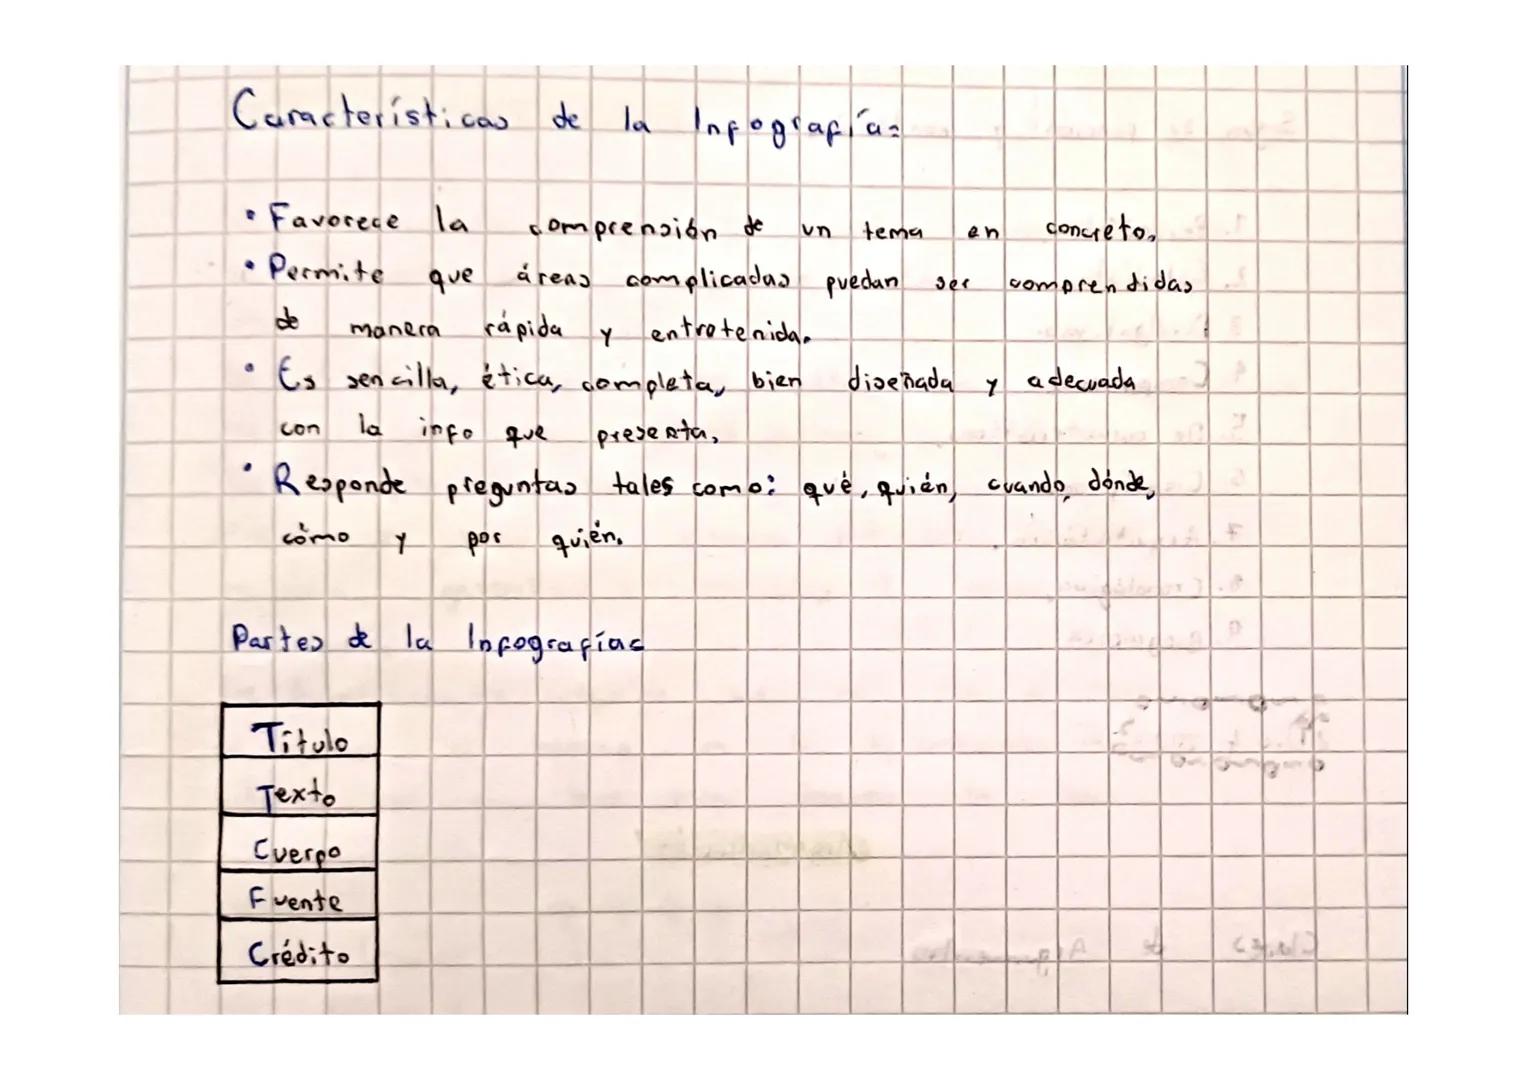 Características de la Infografía:
• Favorece la comprensión de un tema en concreto.
• Permite que áreas complicadas puedan ser comprendidas
de manera rápida y entretenida.
• Es sencilla, ética, completa, bien diseñada y adecuada
con la info que presenta.
• Responde preguntas tales como: qué, quién, cuando, dónde,
cómo y por quién.
Partes de la Infografía:
Título
Texto
Cuerpo
Fuente
Crédito